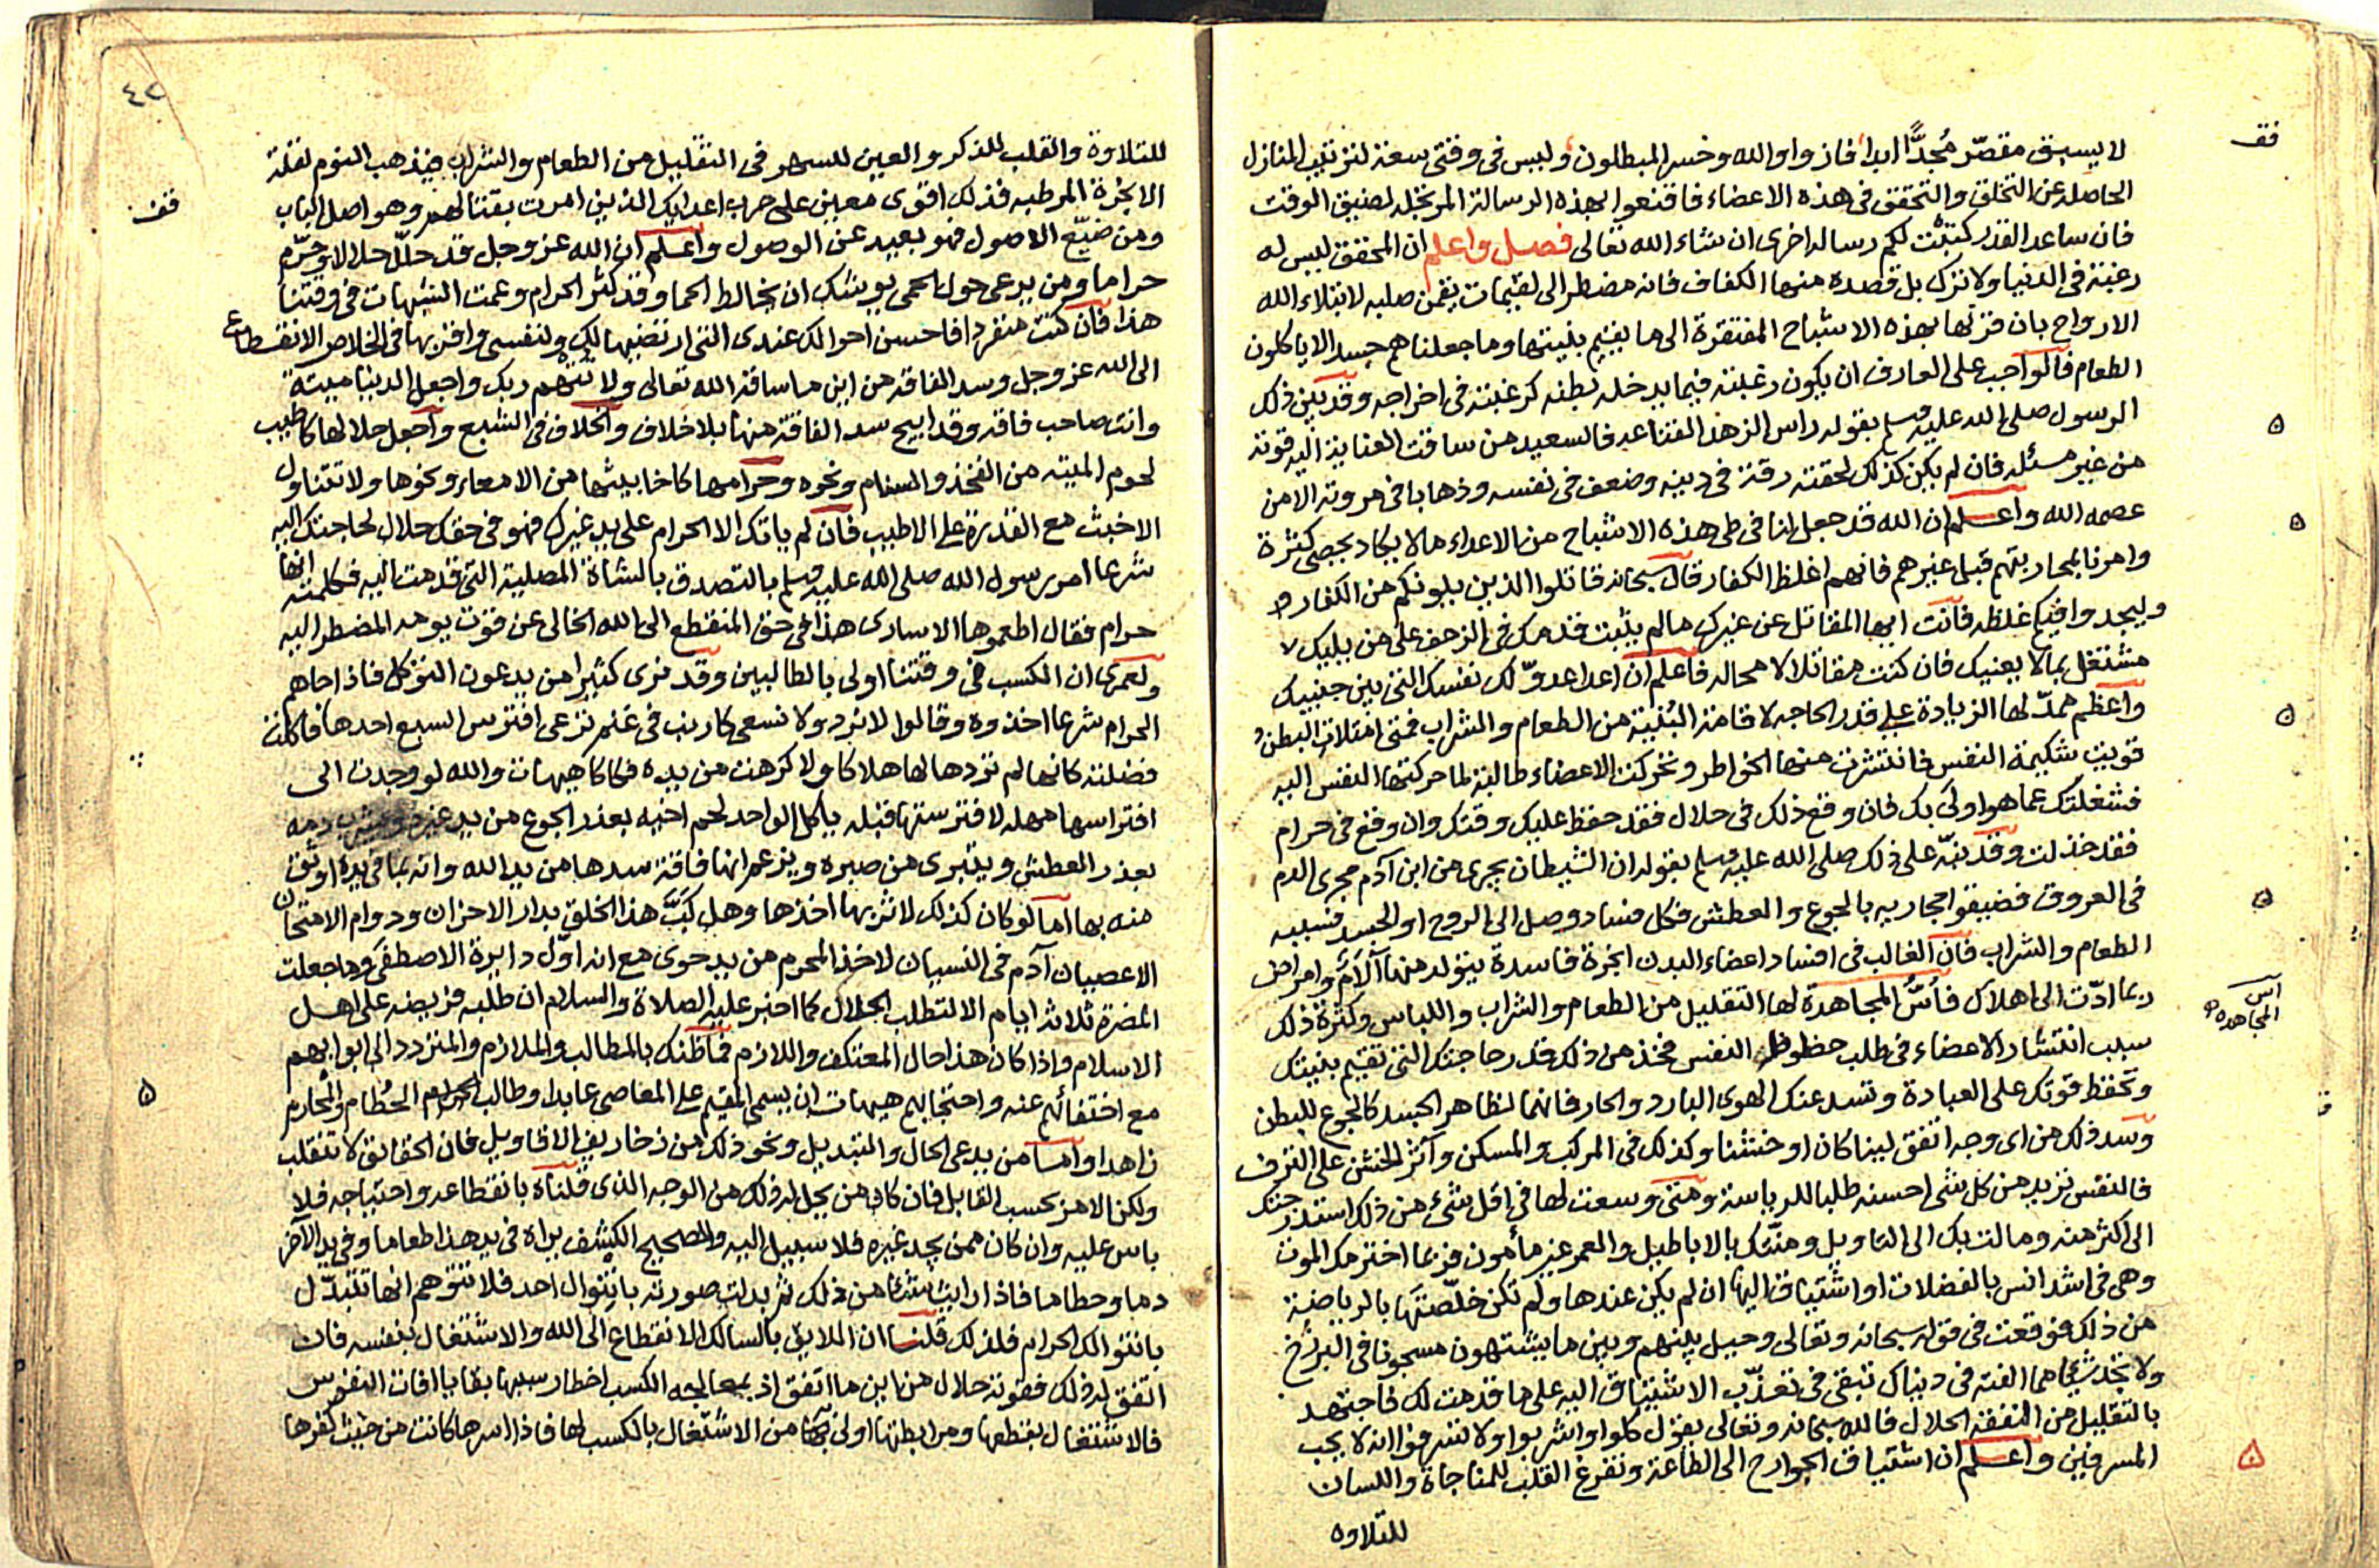 قف
لا يسبق مقصّر مُجدًّا ابدا فازوا والله وخسر المبطلون وليس في وقتي سعة لترتيب المنازل
الحاصلة عن التخلق والتحقق في هذه الاعضاء فاقنعوا بهذه الرسالة المرتجلة لضيق الوقت
فان ساعد القدر كتبت لكم رسالة اخرى ان شاء الله تعالى فصل واعلم ان المحقق ليس له
رغبة في الدنيا ولا ترك بل قصده منها الكفاف فانه مضطر الى لقيمات يقمن صلبه لابتلاء الله
الارواح بان قرنها بهذه الاشباح المفتقرة الى ما يقيم بنيتها وما جعلناهم جسدا لا ياكلون
الطعام فالواجب على العارف ان يكون رغبته فيما يدخله بطنه كرغبته في اخراجه وقد بين ذلك
الرسول صلى الله عليه وسلم بقوله راس الزهد القناعه فالسعيد من ساقت العناية اليه قوته
من غير مسئله فان لم يكن كذلك لحقته رقة في دينه وضعف في نفسه وذهابا في مروته الا من
عصمه الله واعلم ان الله قد جعل لنا في طي هذه الاشباح من الاعداء ما لا يكاد يحصى كثرة
وامرنا بمحاربتهم قبل غيرهم فانهم اغلظ الكفار قال سبحانه قاتلوا الذين يلونكم من الكفار
وليجدوا فيكم غلظة فانت ايها المقاتل عن غيرك ما لم يثبت قدمك في الزحف على من يليك
مشتغل بما لا يعنيك فان كنت مقاتلا لا محاله فاعلم ان اعدا عدوّ لك نفسك التي بين جنبيك
واعظم ممدّ لها الزيادة على قدر الحاجه لاقامة البُنية من الطعام والشراب فمتى امتلات البطن
قويت شكيمة النفس فانتشرت منها الخواطر وتحركت الاعضاء طالبة لما حركتها النفس اليه
فشغلتك عما هو اولى بك فان وقع ذلك في حلال فقد حفظ عليك وقتك وان وقع في حرام
فقد خذلت وقد نبّه على ذلك صلى الله عليه وسلم بقوله ان الشيطان يجرى من ابن آدم مجرى الدم
في العروق فضيقوا مجاريه بالجوع والعطش فكل فساد وصل الى الروح او الجسد فسببه
الطعام والشراب فان الغالب في افساد اعضاء البدن ابخرة فاسدة يتولد منها آلام وامراض
ربما ادّت الى اهلاك فأسّ المجاهدة لها التقليل من الطعام والشراب واللباس وكثرة ذلك
اس
المجاهده
سبب انتشار الاعضاء في طلب حظوظ النفس فخذ من ذلك قدر حاجتك التي تقيم بنيتك
وتحفظ قوتك على العبادة وتسد عنك الهوى البارد والحار فانهما لظاهر الجسد كالجوع للبطن
وسد ذلك من اى وجه اتفق لينا كان او خشنا وكذلك في المركب والمسكن وآثر الخشن على الترف
فالنفس تريد من كل شى احسنه طلبا للرياسة ومتى وسعت لها في اقل شيء من ذلك استدرجتك
الى اكثر منه ومالت بك الى التاويل ومنّتك بالاباطيل والعمر غير مأمون فربما اخترمك الموت
وهى في اشد انس بالفضلات او اشتياقا اليها ان لم يكن عندها ولم تكن خلّصتها بالرياضة
من ذلك فوقعت في قوله سبحانه وتعالى وحيل بينهم وبين ما يشتهون مسجونا في البرزخ
ولا تجد شيئا مما الفته في دنياك تبقى في تعذّب الاشتياق اليه على ما قدمت لك فاجتهد
بالتقليل من النفقة الحلال فالله سبحانه وتعالى يقول كلوا واشربوا ولا تسرفوا انه لا يحب
المسرفين واعلم ان اشتياق الجوارح الى الطاعة وتفرغ القلب للمناجاة واللسان
للتلاوه
٤٢
للتلاوة والقلب للذكر والعين للسهر في التقليل من الطعام والشراب فيذهب النوم لقلة
الابخرة المرطبه فذلك اقوى معين على حرب اعدائك الذين امرت بقتالهم وهو اصل الباب
قف
ومن ضيّع الاصول فهو بعيد عن الوصول واعلم ان الله عز وجل قد حلّل حلالا وحرّم
حراما ومن يرعى حول الحمى يوشك ان يخالط الحما وقد كثر الحرام وعمت الشبهات في وقتنا
هذا فان كنت منفردا فاحسن احوالك عندى التي ارتضيها لك ولنفسى وافز بها في الخلاص الانقطاع
الى الله عز وجل وسد الفاقة من اين ما ساقه الله تعالى ولا تتهم ربك واجعل الدنيا ميتة
وانت صاحب فاقه وقد ابيح سد الفاقة منها بلا خلاف والخلاف في الشبع واجعل حلالها كاطيب
لحوم الميته من الفخذ والسنام ونحوه وحرامها كاخابيثها من الامعاء ونحوها ولا تتناول
الاخبث مع القدرة على الاطيب فان لم ياتك الا الحرام على يد غيرك فهو في حقك حلال لحاجتك اليه
شرعا امر رسول الله صلى الله عليه وسلم بالتصدق بالشاة المصلية التي قدمت اليه فكلمته انها
حرام فقال اطعموها الاسارى هذا في حق المنقطع الى الله الخالى عن قوت يومه المضطر اليه
ولعمرى ان الكسب في وقتنا اولى بالطالبين وقد نرى كثيرا من يدعون التوكل فاذا جاهم
الحرام شرعا اخذوه وقالوا لا نرد ولا نسعى كاذب في غنم ترعى افترس السبع احدها فاكلت
فضلته كانها لم تردها لها هلاكا ولا كرهت من يده فكاكا هيهات والله لو وجدت الى
افتراسها مهله لافترستها قبله ياكل الواحد لحم اخيه بعذر الجوع من يد غيره ويشرب دمه
بعذر العطش ويتبرى من صبره ويزعم انها فاقة سدها من يد الله وانه بما في يده اوثق
منه بها اما لو كان كذلك لاثر بها اخذها وهل كَبَّ هذا الخلق بدار الاحزان ودوام الامتحان
الا عصيان آدم في النسيان لاخذ المحرم من يد حوى مع انه اوّل دايرة الاصطفى وما جعلت
المضرة ثلاثة ايام الا لتطلب الحلال كما اخبر عليه الصلاة والسلام ان طلبه فريضه على اهل
الاسلام واذا كان هذا حال المعتكف واللازم فما ظنك بالمطالب والملازم والمتردد الى ابوابهم
مع اختفائهم عنه واحتجابهم هيهات ان يسمى المقيم على المعاصى عابدا وطالب الحرام الحُطام والمحارم
زاهدا واما من يدعى الحال والتبديل ونحو ذلك من زخاريف الاقاويل فان الحقائق لا تنقلب
ولكن الامر بحسب القابل فان كان من يحل له ذلك من الوجه الذى قلناه بانقطاعه واحتياجه فلا
باس عليه وان كان ممن يجد غيره فلا سبيل اليه والصحيح الكشف يراه في يد هذا طعاما وفي يد الآخر
دما وحطاما فاذا رايت شئا من ذلك ثم بدلت صورته بانتوال احد فلا تتوهم انها تتبدّل
بانتوالك الحرام فلذلك قلنا ان الملايق بالسالك الانقطاع الى الله والاشتغال بنفسه فان
اتفق له ذلك فقوته حلال من اين ما اتفق اذ بمعالجه الكسب اخطار سببها بقايا افات النفوس
فالاشتغال بقطعها ومرابطتها اولى من الاشتغال بالكسب لها فاذا اسرها كانت من حيث كفرها